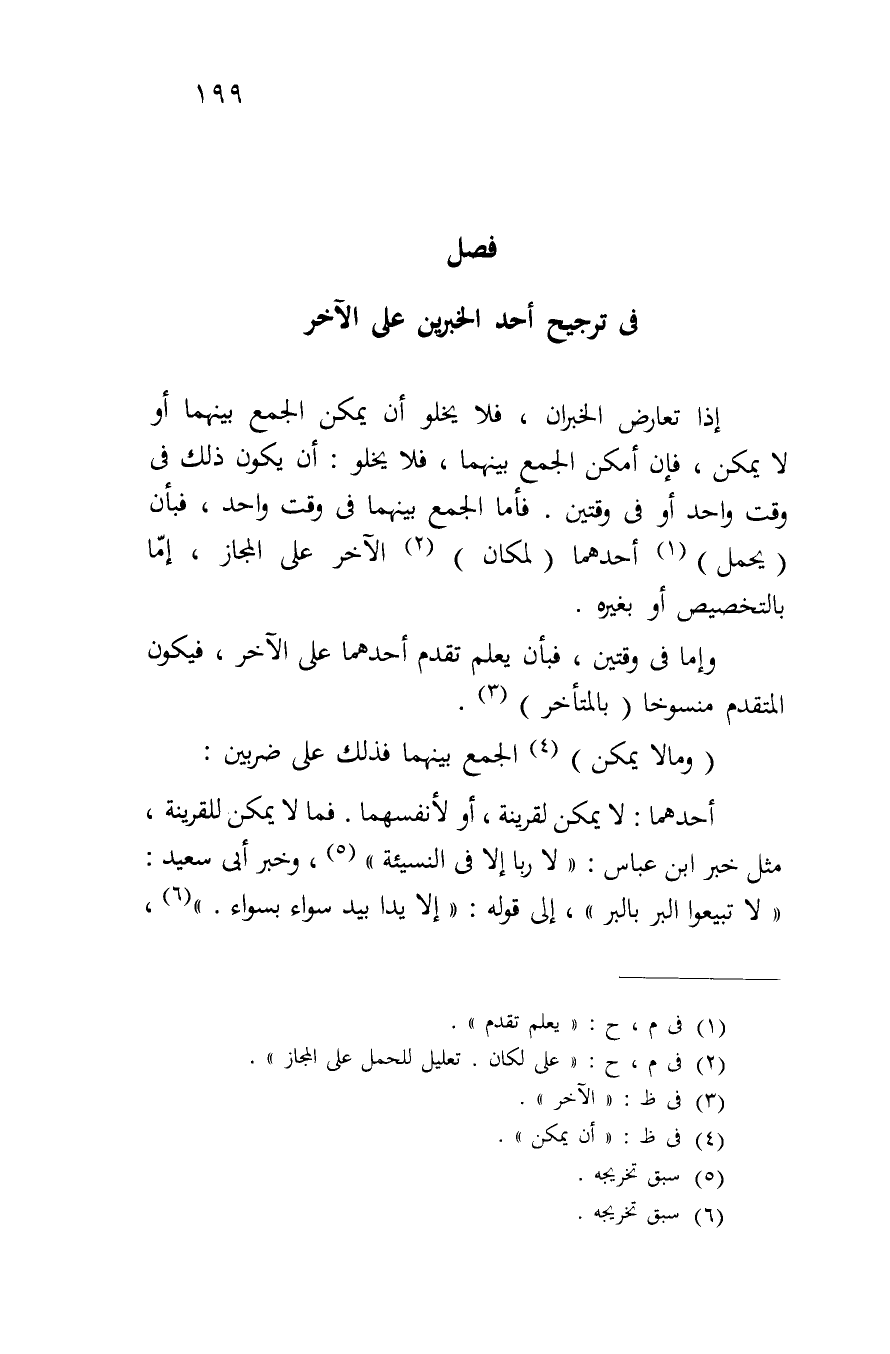 ١٩٩
فصل
فى ترجيح أحد الخبرين على الآخر
إذا تعارض الخبران ، فلا يخلو أن يمكن الجمع بينهما أو
لا يمكن ، فإن أمكن الجمع بينهما ، فلا يخلو : أن يكون ذلك فى
وقت واحد أو فى وقتين . فأما الجمع بينهما فى وقت واحد ، فبأن
( يحمل ) (١) أحدهما ( لمكان ) (٢) الآخر على المجاز ، إمّا
بالتخصيص أو بغيره .
وإما فى وقتين ، فبأن يعلم تقدم أحدهما على الآخر ، فيكون
المتقدم منسوخا ( بالمتأخر ) (٣) .
( ومالا يمكن ) (٤) الجمع بينهما فذلك على ضربين :
أحدهما : لا يمكن لقرينة ، أو لأنفسهما . فما لا يمكن للقرينة ،
مثل خبر ابن عباس : « لا ربا إلا فى النسيئة » (٥) ، وخبر أبى سعيد :
« لا تبيعوا البر بالبر » ، إلى قوله : « إلا يدا بيد سواء بسواء . »(٦) ،
(١) فى م ، ح : « يعلم تقدم » .
(٢) فى م ، ح : « على لكان . تعليل للحمل على المجاز » .
(٣) فى ظ : « الآخر » .
(٤) فى ظ : « أن يمكن » .
(٥) سبق تخريجه .
(٦) سبق تخريجه .